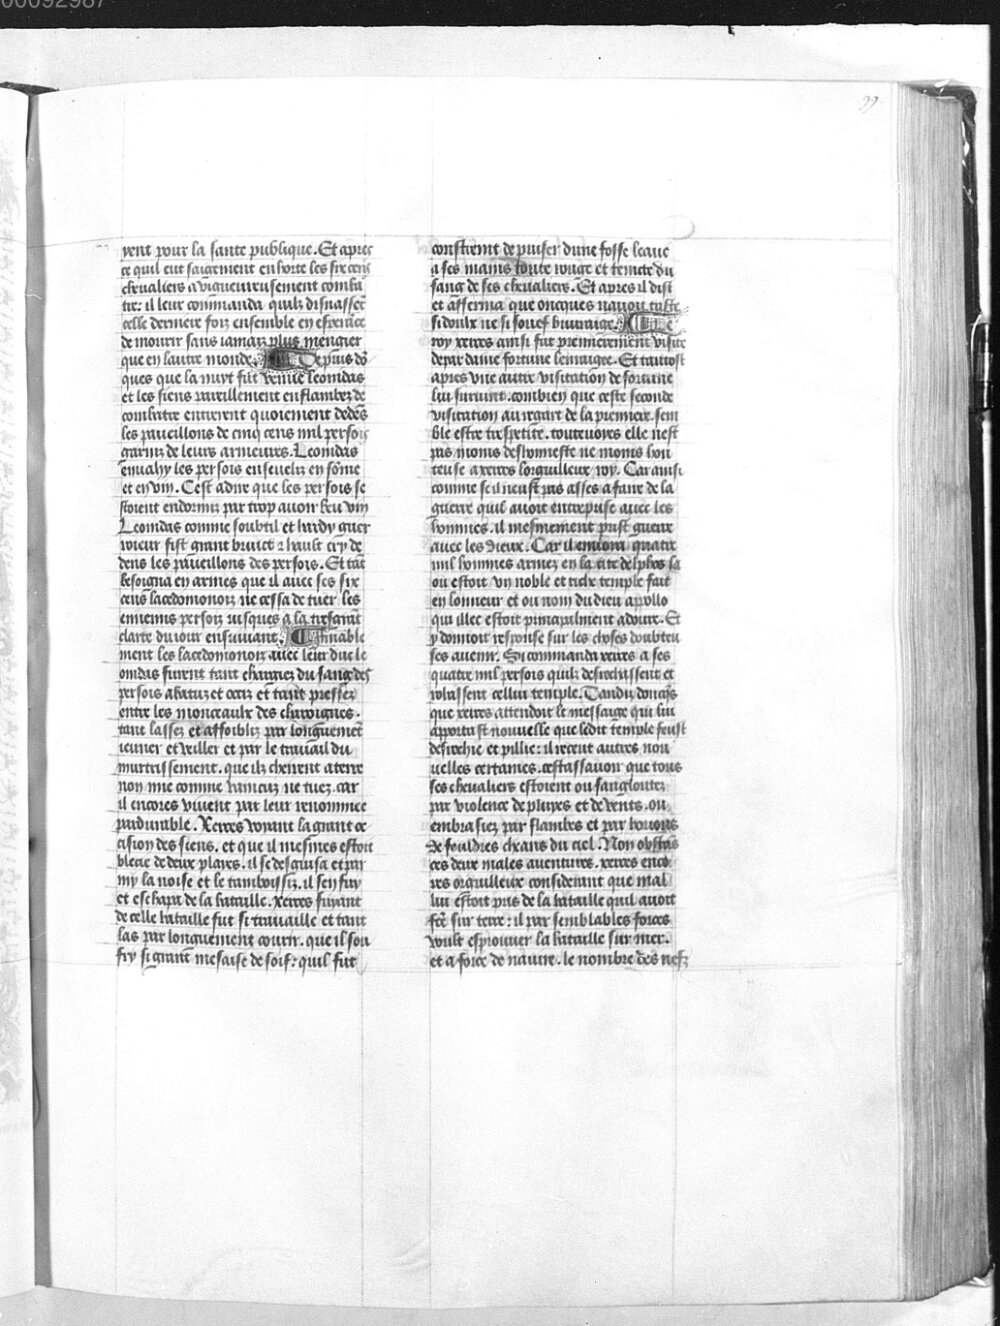 00092987
99
rent pour la sante publique. Et apres
ce quil eut saigement enhorte les six cens
cheualiers a vigueureusement comba
tre: il leur commanda quilz disnassēt
celle derniere foiz ensemble en esperāce
de mourir sans iamaiz plus mengier
que en lautre monde. Depuis dō
ques que la nuyt fut venue leonidas
et les siens pareillement enflambez de
combatre entrerent quoiement dedēs
les paueillons de cinq cens mil persois
garniz de leurs armeures. Leonidas
enuahy les persois enseueliz en sōme
et en vin. Cest adire que les persois se
stoient endormiz par trop auoir beu vin
Leonidas comme soubtil et hardy guer
roieur fist grant bruict ⁊ hault cry de
dens les paueillons des persois. Et tāt
besoigna en armes que il auec ses six
cens lacedomonoiz ne cessa de tuer les
ennemis persoiz iusques a la tresgrāt
clarte du iour ensuiuant. Finable
ment les lacedomonoiz auec leur duc le
onidas furent tant chargiez du sang des
persois abatuz et occiz et tant pressez
entre les monceaulx des charoignes.
tant lassez et affoibliz par longuemēt
ieuner et veiller et par le trauail du
murtrissement. que ilz cheirent a terre
non mie comme vaincuz ne tuez. car
il encores viuent par leur renommee
pardurable. Xerces voyant la grant oc
cision des siens. et que il mesmes estoit
blecie de deux playes. il se desguisa et par
my la noise et le tamboissiz. il sen fuy
et eschapa de la bataille. xerces fuyant
de celle bataille fut si trauaille et tant
las par longuement courir. que il sou
fry si grant mesaise de soif: quil fut
constreint de puiser dune fosse leaue
a ses mains toute rouge et teincte du
sang de ses cheualiers. Et apres il dist
et afferma que oncques nauoit taste
si doulx ne si souef beuuraige. Le
roy xerces ainsi fut premierement visite
depar dame fortune lennuigre. Et tantost
apres vne autre visitation de fortune
lui suruint. combien que ceste seconde
visitation au regart de la premiere. sem
ble estre trespetite. touteuoyes elle nest
pas moins deshonneste ne moins hon
teuse a xerces lorguilleux roy. Car ainsi
comme se il neust pas asses a faire de la
guerre quil auoit entreprise auec les
hommes. il mesmement prist guerre
auec les dieux. Car il enuoia quatre
mil hommes armez en la cite delphos la
ou estoit vn noble et riche temple fait
en lonneur et ou nom du dieu apollo
qui illec estoit principalment adoure. Et
y donnoit response sur les choses doubteu
ses auenir. Si commanda xerces a ses
quatre mil persois quilz desrochassent et
robassent cellui temple. Tandiz doncqs
que xerces attendoit le messaige qui lui
apportast nouuelle que ledit temple feust
desrochie et pillie: il receut autres nou
uelles certaines. cestassauoir que tous
ses cheualiers estoient ou sangloutez
par violence de pluyes et de vents. ou
embrasiez par flambes et par broons
de fouldres cheans du ciel. Non obstās
ces deux males auentures. xerces enco
res orguilleux considerant que mal
lui estoit pris de la bataille quil auoit
fcē sur terre: il par semblables forces
voult esprouuer la bataille sur mer.
et a force de nauire. le nombre des nefz